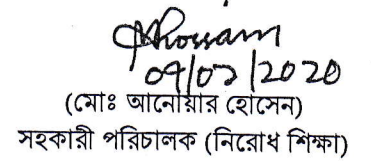 Hossain
09/02/2020
(মোঃ আনোয়ার হোসেন)
সহকারী পরিচালক (নিরোধ শিক্ষা)